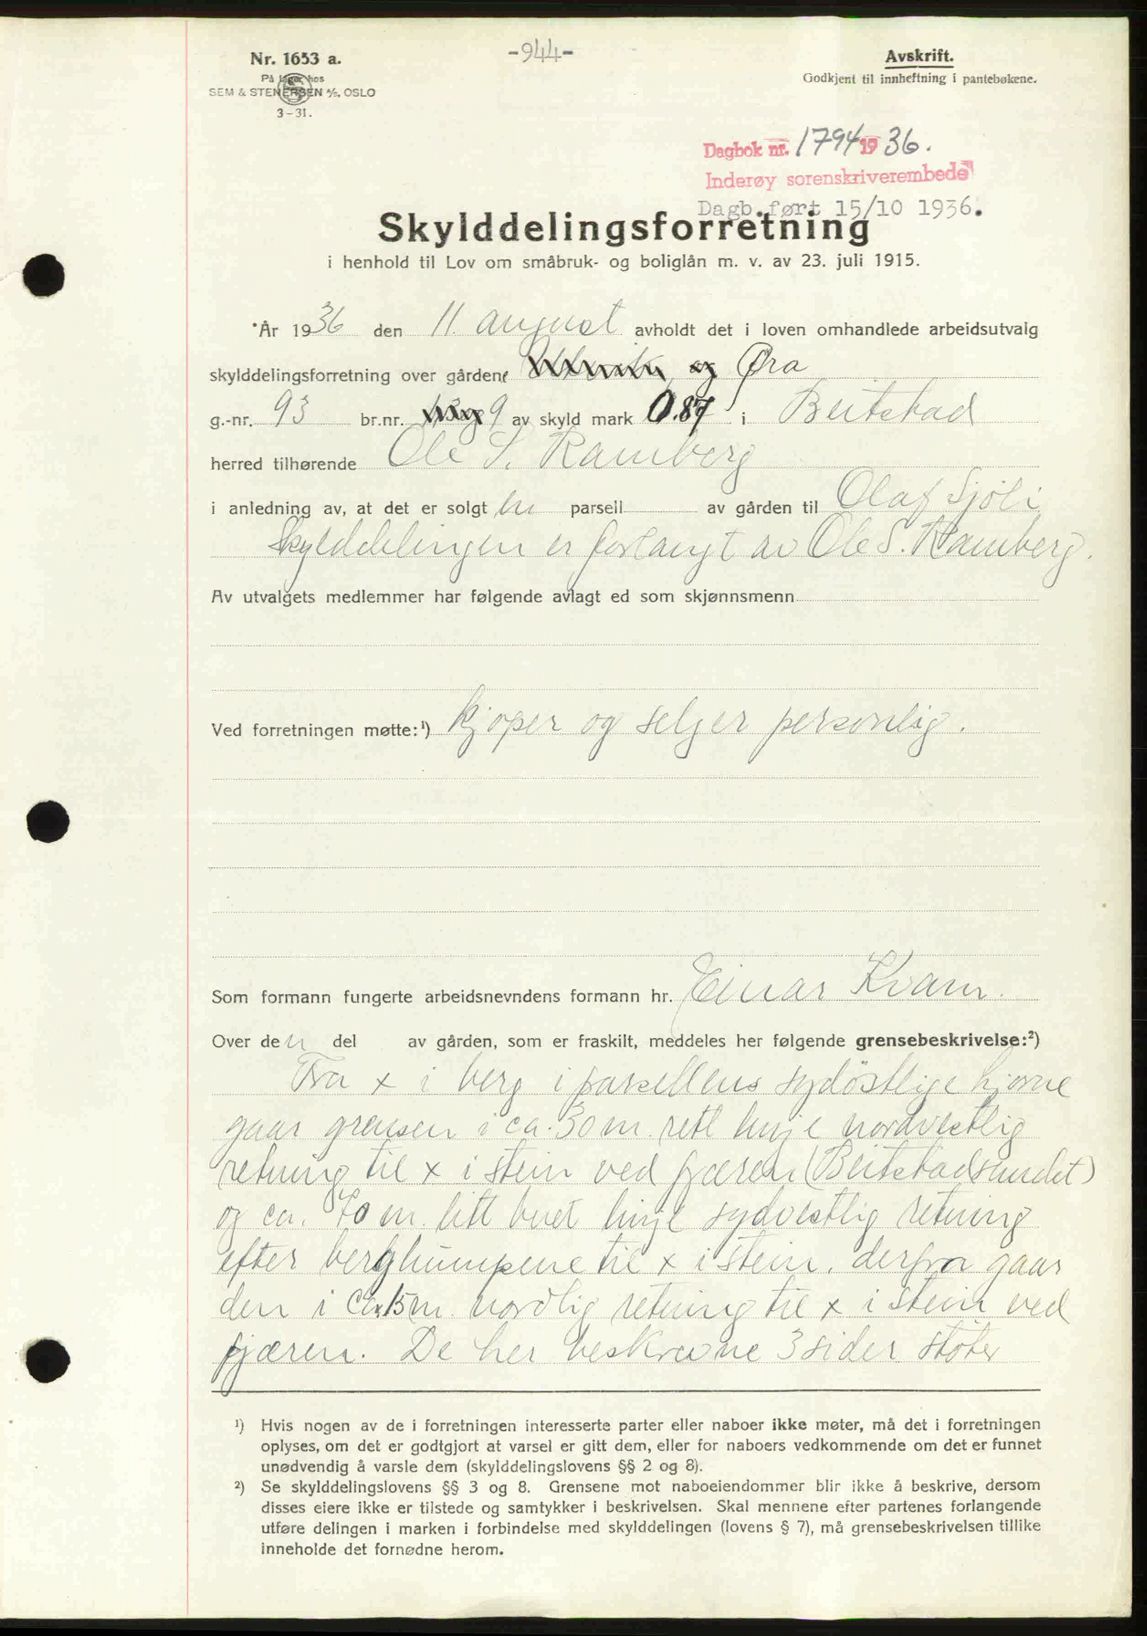 -944-
Nr. 1653 a.
På lager hos
SEM & STENERSEN A/S, OSLO
3-31.
Avskrift.
Godkjent til innheftning i pantebøkene.
Dagbok nr. 1794 1936.
Inderøy sorenskriverembede
Dagb.ført 15/10 1936.
Skylddelingsforretning
i henhold til Lov om småbruk- og boliglån m. v. av 23. juli 1915.
År 1936 den 11 august avholdt det i loven omhandlede arbeidsutvalg
skylddelingsforretning over gården Øra
g.-nr. 93 br.nr. 9 av skyld mark 0.87 i Beitstad
herred tilhørende Ole S. Ramberg
i anledning av, at det er solgt en parsell av gården til Olaf Sjöli
Skylddelingen er forlangt av Ole S. Ramberg.
Av utvalgets medlemmer har følgende avlagt ed som skjønnsmenn
Ved forretningen møtte:¹) Kjøper og selger personlig.
Som formann fungerte arbeidsnevndens formann hr. Einar Kvam.
Over den del av gården, som er fraskilt, meddeles her følgende grensebeskrivelse:²)
Fra x i berg i parsellens sydöstlige hjorne
gaar grensen i ca. 30 m. rett linje nordvestlig
retning til x i stein ved fjæren (Beitstadsundet)
og ca. 70 m. litt buet linje sydvestlig retning
efter berghumpene til x i stein. derfra gaar
den i ca. 15 m. nordlig retning til x i stein ved
fjæren. De her beskrevne 3 sider støter
¹) Hvis nogen av de i forretningen interesserte parter eller naboer ikke møter, må det i forretningen
oplyses, om det er godtgjort at varsel er gitt dem, eller for naboers vedkommende om det er funnet
unødvendig å varsle dem (skylddelingslovens §§ 2 og 8).
²) Se skylddelingslovens §§ 3 og 8. Grensene mot naboeiendommer blir ikke å beskrive, dersom
disses eiere ikke er tilstede og samtykker i beskrivelsen. Skal mennene efter partenes forlangende
utføre delingen i marken i forbindelse med skylddelingen (lovens § 7), må grensebeskrivelsen tillike
inneholde det fornødne herom.